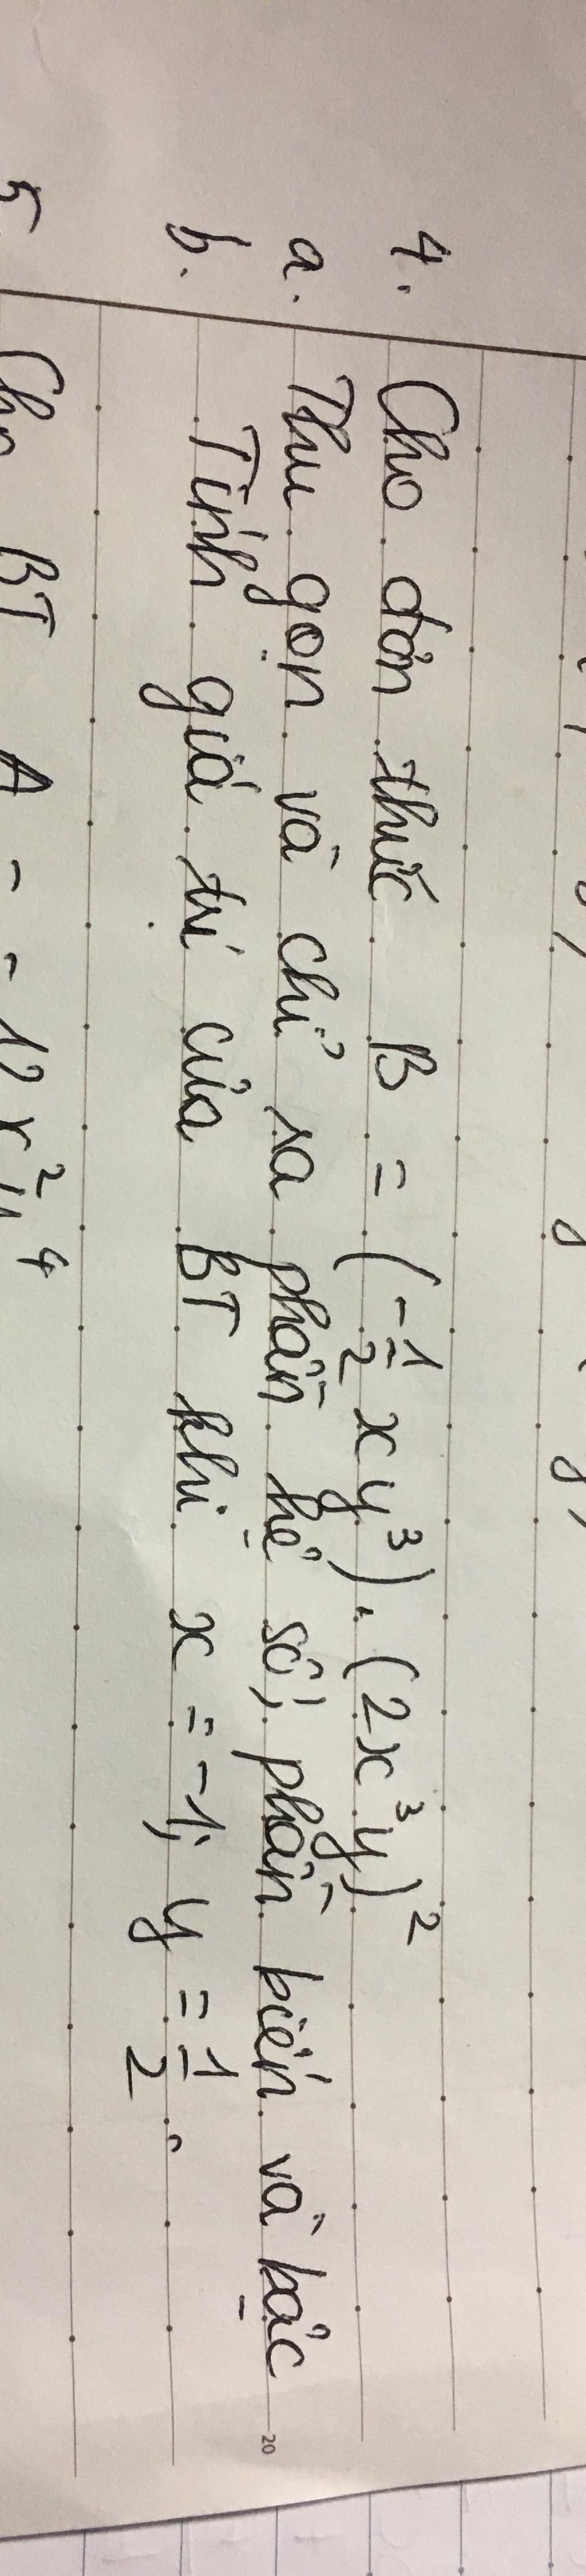 4. Cho đơn thức B = (-1/2 xy³).(2x³y)²
a. Thu gọn và chỉ ra phần hệ số; phần biến và bậc
b. Tính giá trị của BT khi x = -1; y = 1/2.
5. Cho BT A = -12x²y⁴
20